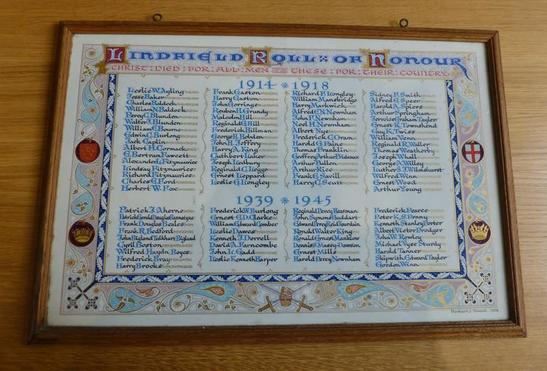 Lindfield Roll of Honour
CHRIST DIED FOR ALL MEN THESE FOR THEIR COUNTRY
1914 1918
Leslie W. Ayling
Jesse Baker
Charles Baldock
William N. Baldock
Percy C. Blunden
Walter J. Blunden
William G. Bourne
Edwin J. Burtong
Jack Caplin
Albert H. Cormack
C. Bertram Fawcett
Alexander Fitzmaurice
Lindsay Fitzmaurice
Richard Fitzmaurice
Charles H. Ford
Herbert W. Fox
Frank Gaston
Harry Gaston
John Gorringe
Robert H. Grundy
Malcolm Hill
Reginald J. Hill
Frederick Hillman
George F. Holden
John R. Jeffery
Harry A. King
Cuthbert Laker
Joseph Lockyer
Reginald C. Hogge
Ernest Leppard
Leslie G. Longley
Richard P. Longley
William Mansbridge
Harry Markwick
Alfred G. Newnham
John P. Newnham
Noel H. Newnham
Albert Nye
Frederick C. Oram
Harold G. Paine
Thomas Franklin
Arthur Pullen
Arthur Rice
Frank G. Savill
Harry C. Scutt
Sidney B. Smith
Alfred G. Speer
Harold A. Spicer
Arthur Springham
Ernest R. Townsend
Guy K. Twiss
William Venn
Reginald R. Waller
Thomas Weatherby
Joseph Whall
George A. Willey
Wilfred Winn
Ernest Wood
Arthur Young
1939 1945
Patrick J. Aherne
Frank R. Bedford
Cyril Boston
Wilfred Haydn Boyce
Frederick Bray
Harry Brooke
Frederick W. Burtong
Ernest G. D. Clarke
William Edward Comber
Leslie Downer
Kenneth J. Dorrell
David A. Farncombe
John H. Gadd
Leslie Kenneth Harper
Reginald Percy Heasman
John Symons Holtart
Ronald Walter King
Ernest Mills
Harold Percy Newnham
Frederick Pearce
Peter K. S. Penny
Kenneth Stanley Porter
Albert Victor Brodger
John W. Rowley
Michael Vyse Sturdy
Harold Tanner
Skipwith Edward Taylor
Gordon Winn